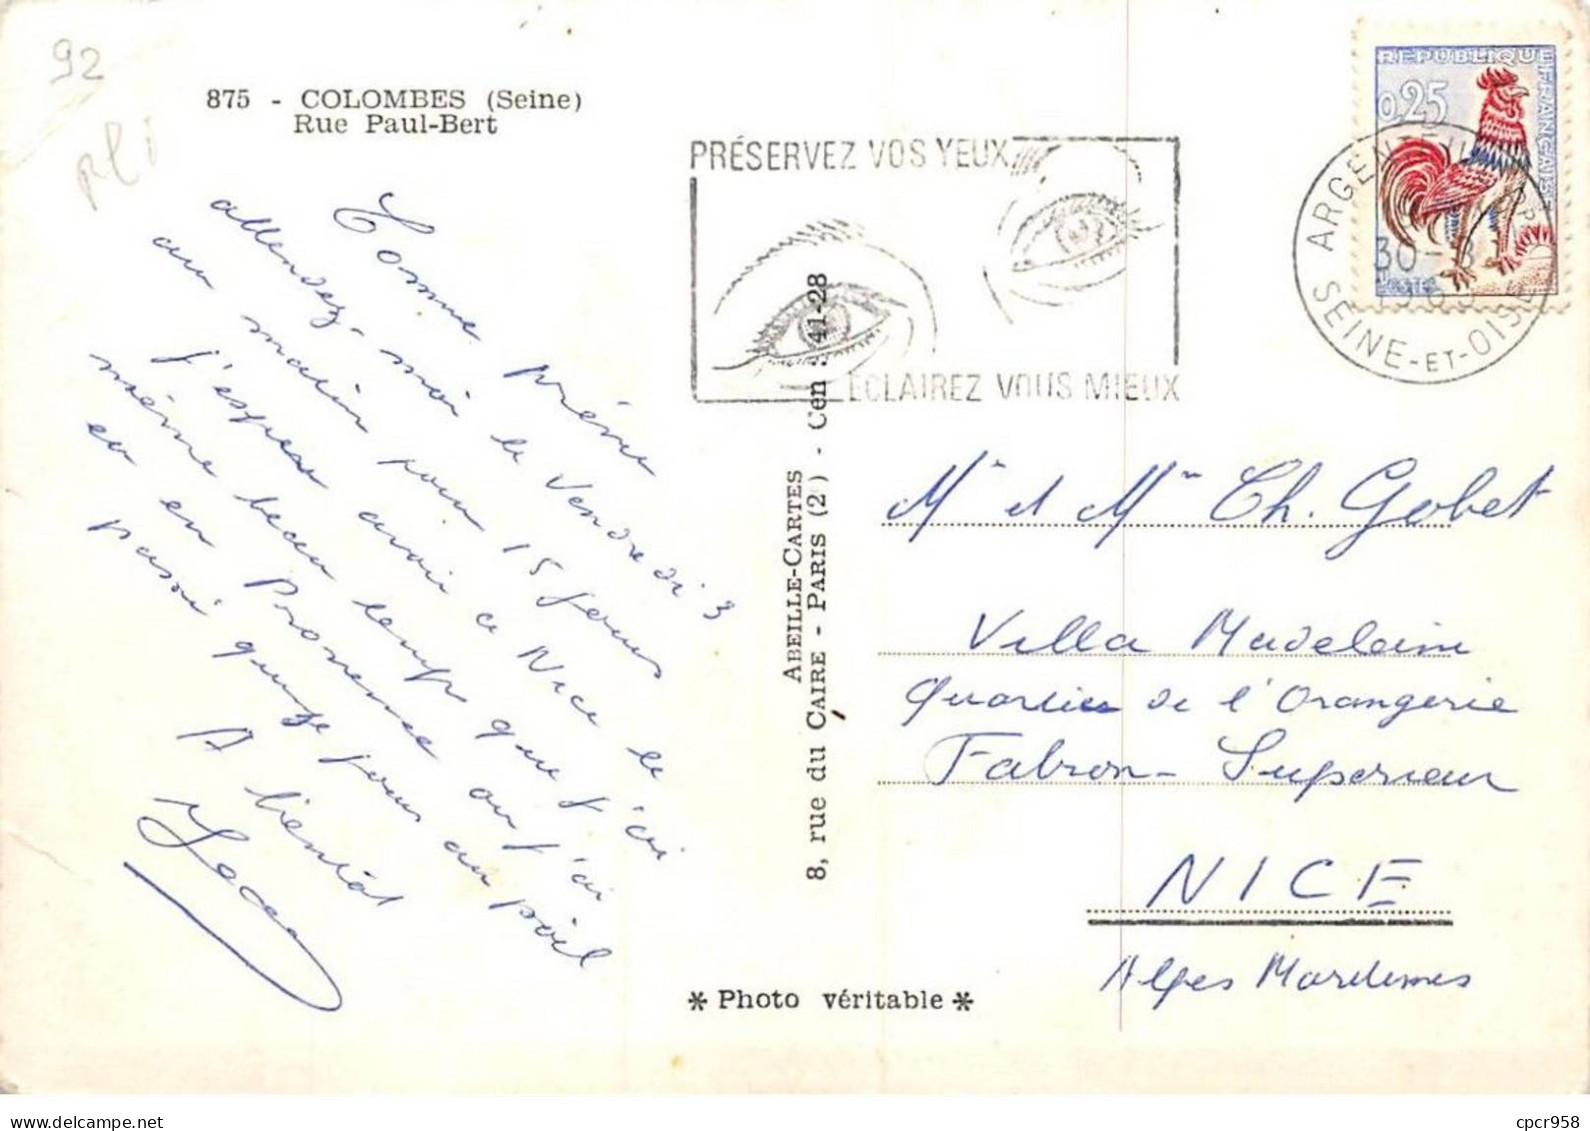 92
875 - COLOMBES (Seine)
Rue Paul-Bert
pli
PRÉSERVEZ VOS YEUX
ECLAIREZ VOUS MIEUX
REPUBLIQUE FRANÇAISE
0,25
POSTES
ARGENTEUIL
30-8
SEINE-ET-OISE
Comme prévu
attendez-moi le Vendredi 3
au matin pour 15 jours
J'espère avoir à Nice le
même beau temps que j'ai
eu en Provence ou j'ai
passé quinze jours au poil
A bientôt
ABEILLE-CARTES
8, rue du CAIRE - PARIS (2) - Cen : 41-28
Mr et Mme Ch. Gobet
Villa Madeleine
Quartier de l'Orangerie
Fabron-Superieur
NICE
Alpes Maritimes
* Photo véritable *
www.delcampe.net
cpcr958